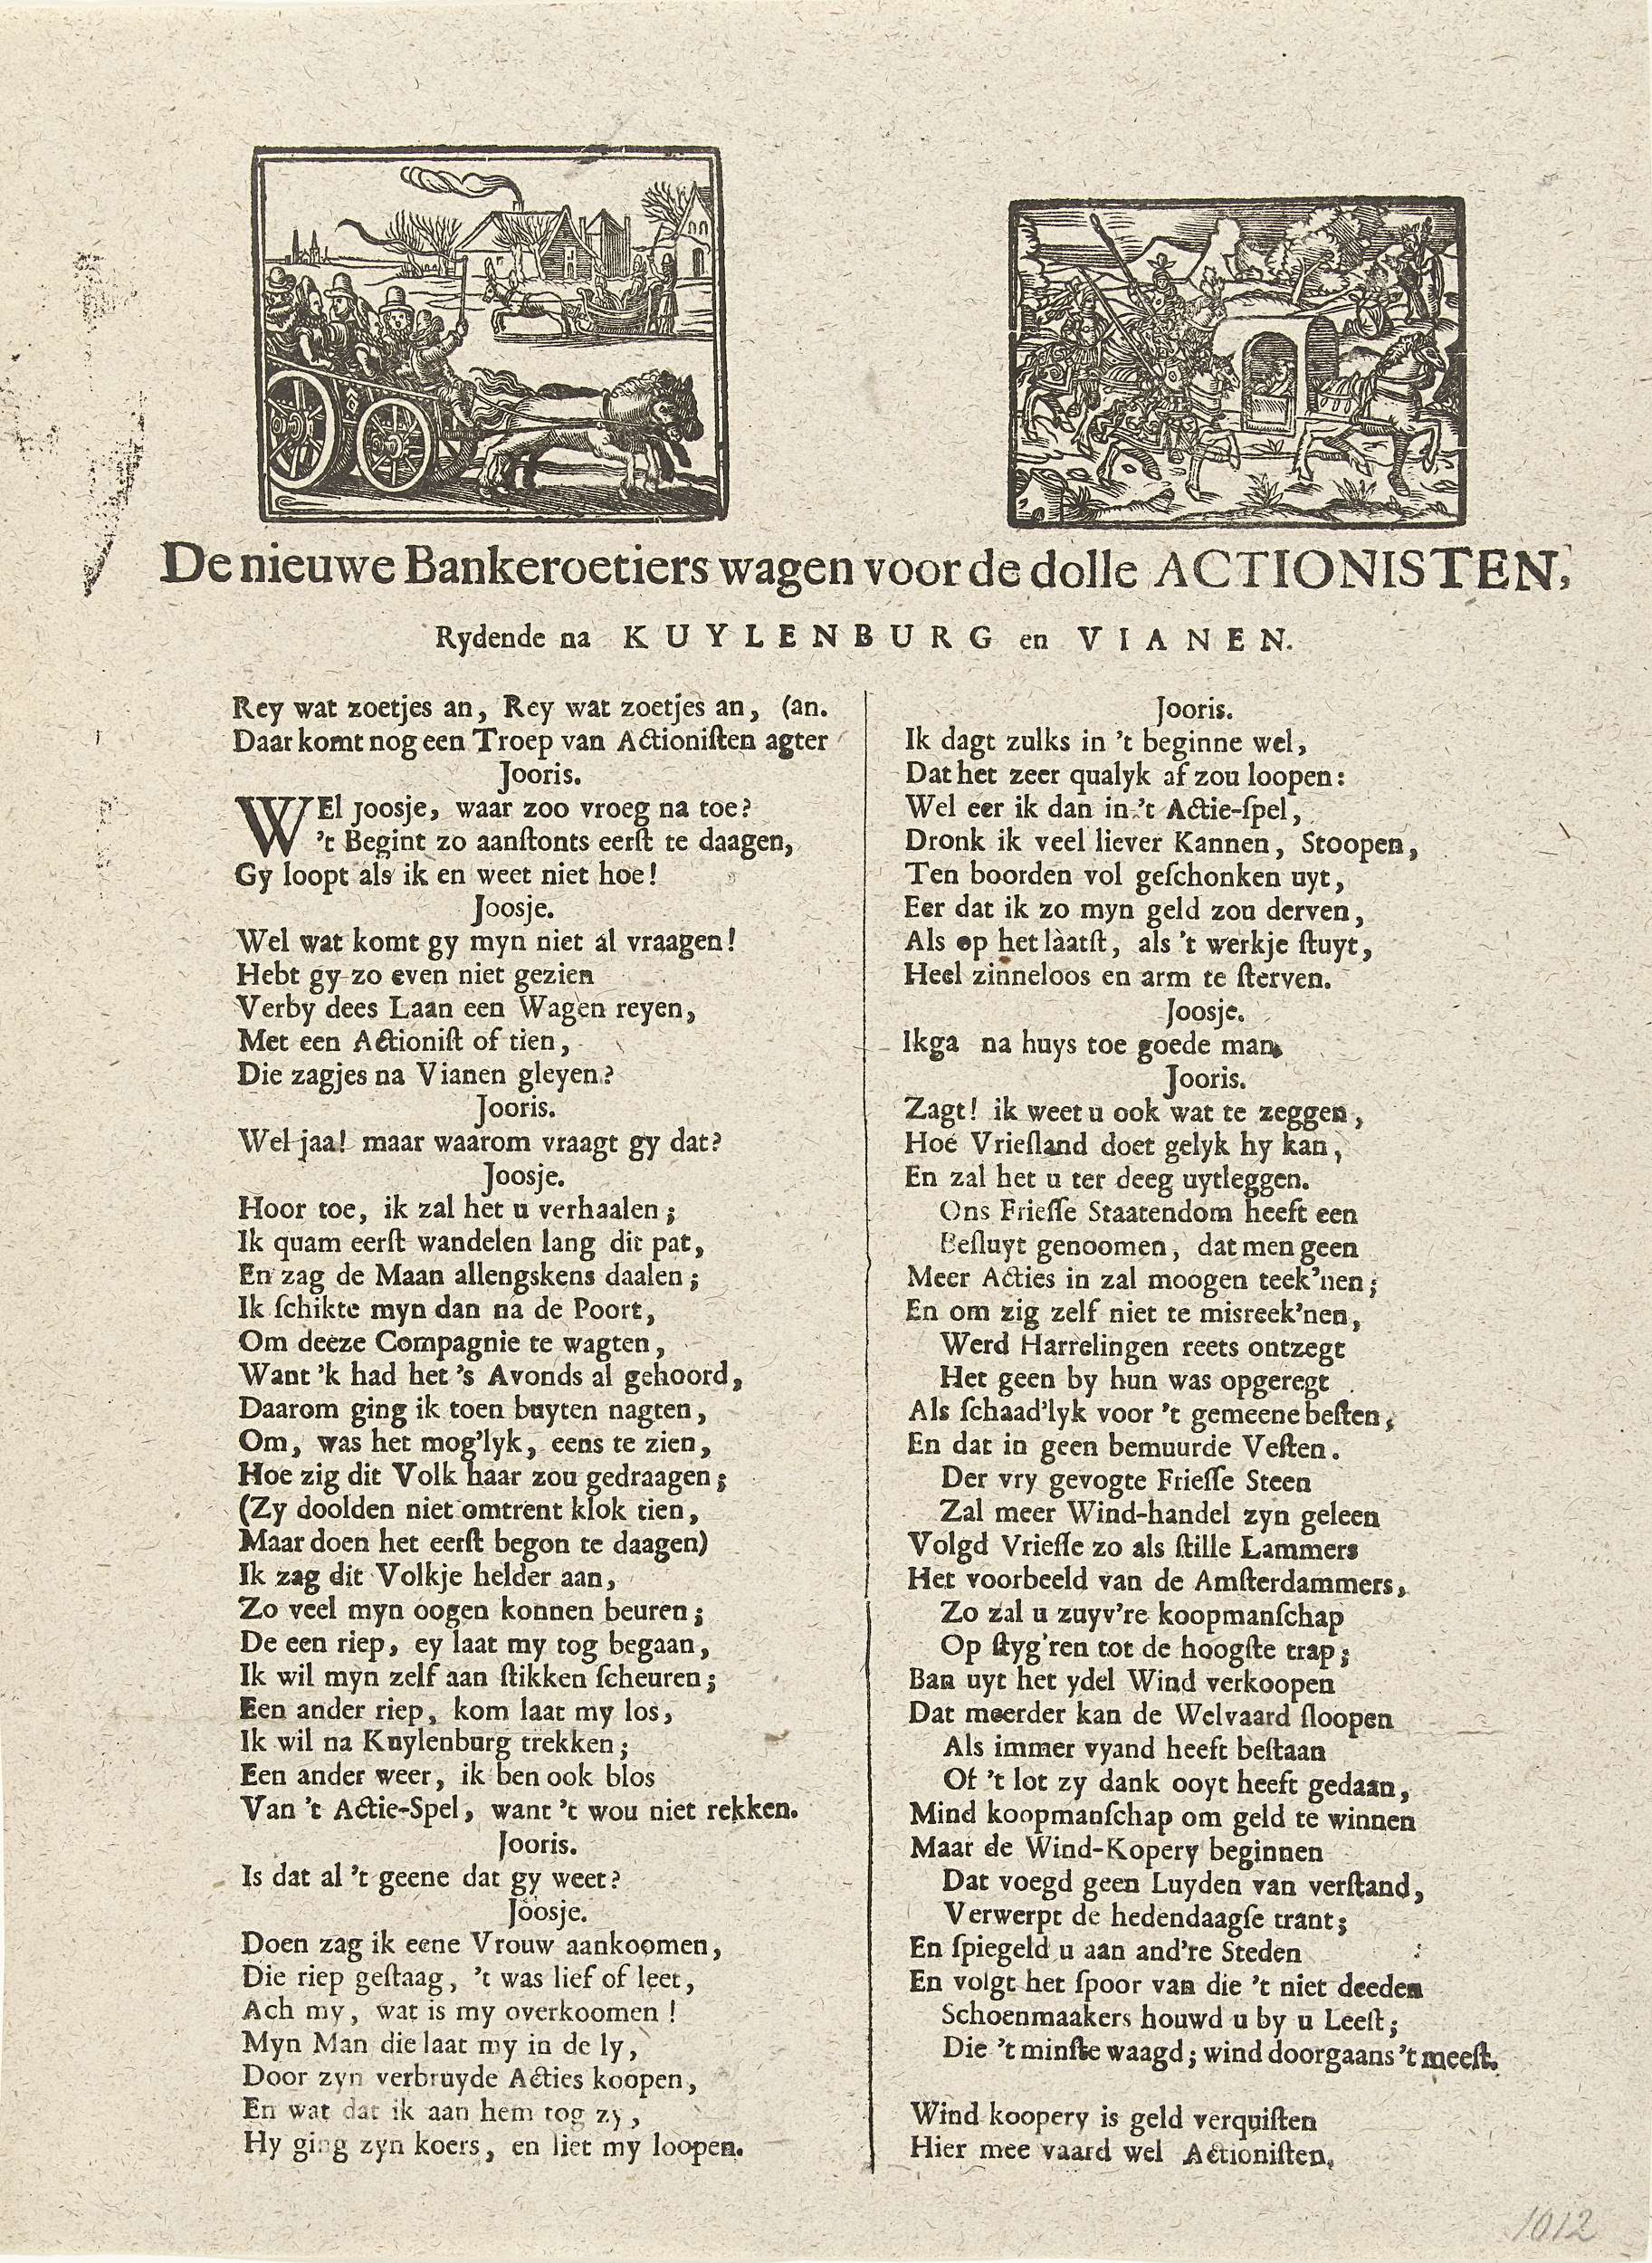 De nieuwe Bankeroetiers wagen voor de dolle ACTIONISTEN,
Rydende na KUYLENBURG en VIANEN.
Rey wat zoetjes an, Rey wat zoetjes an, (an.
Daar komt nog een Troep van Actioniſten agter
Jooris.
WEl Joosje, waar zoo vroeg na toe?
't Begint zo aanſtonts eerſt te daagen,
Gy loopt als ik en weet niet hoe!
Joosje.
Wel wat komt gy myn niet al vraagen!
Hebt gy zo even niet gezien
Verby dees Laan een Wagen reyen,
Met een Actioniſt of tien,
Die zagjes na Vianen gleyen?
Jooris.
Wel jaa! maar waarom vraagt gy dat?
Joosje.
Hoor toe, ik zal het u verhaalen;
Ik quam eerſt wandelen lang dit pat,
En zag de Maan allengskens daalen;
Ik ſchikte myn dan na de Poort,
Om deeze Compagnie te wagten,
Want 'k had het 's Avonds al gehoord,
Daarom ging ik toen buyten nagten,
Om, was het mog'lyk, eens te zien,
Hoe zig dit Volk haar zou gedraagen;
(Zy doolden niet omtrent klok tien,
Maar doen het eerſt begon te daagen)
Ik zag dit Volkje helder aan,
Zo veel myn oogen konnen beuren;
De een riep, ey laat my tog begaan,
Ik wil myn zelf aan ſtikken ſcheuren;
Een ander riep, kom laat my los,
Ik wil na Kuylenburg trekken;
Een ander weer, ik ben ook blos
Van 't Actie-Spel, want 't wou niet rekken.
Jooris.
Is dat al 't geene dat gy weet?
Joosje.
Doen zag ik eene Vrouw aankoomen,
Die riep geſtaag, 't was lief of leet,
Ach my, wat is my overkoomen!
Myn Man die laat my in de ly,
Door zyn verbruyde Acties koopen,
En wat dat ik aan hem tog zy,
Hy ging zyn koers, en liet my loopen.
Jooris.
Ik dagt zulks in 't beginne wel,
Dat het zeer qualyk af zou loopen:
Wel eer ik dan in 't Actie-ſpel,
Dronk ik veel liever Kannen, Stoopen,
Ten boorden vol geſchonken uyt,
Eer dat ik zo myn geld zou derven,
Als op het laatſt, als 't werkje ſtuyt,
Heel zinneloos en arm te ſterven.
Joosje.
Ikga na huys toe goede man.
Jooris.
Zagt! ik weet u ook wat te zeggen,
Hoe Vrieſland doet gelyk hy kan,
En zal het u ter deeg uytleggen.
Ons Frieſſe Staatendom heeft een
Beſluyt genoomen, dat men geen
Meer Acties in zal moogen teek'nen;
En om zig zelf niet te misreek'nen,
Werd Harrelingen reets ontzegt
Het geen by hun was opgeregt
Als ſchaad'lyk voor 't gemeene beſten,
En dat in geen bemuurde Veſten.
Der vry gevogte Frieſſe Steen
Zal meer Wind-handel zyn geleen
Volgd Vrieſſe zo als ſtille Lammers
Het voorbeeld van de Amſterdammers,
Zo zal u zuyv're koopmanſchap
Op ſtyg'ren tot de hoogſte trap;
Ban uyt het ydel Wind verkoopen
Dat meerder kan de Welvaard ſloopen
Als immer vyand heeft beſtaan
Of 't lot zy dank ooyt heeft gedaan,
Mind koopmanſchap om geld te winnen
Maar de Wind-Kopery beginnen
Dat voegd geen Luyden van verſtand,
Verwerpt de hedendaagſe trant;
En ſpiegeld u aan and're Steden
En volgt het ſpoor van die 't niet deeden
Schoenmaakers houwd u by u Leeſt;
Die 't minſte waagd; wind doorgaans 't meeſt.
Wind koopery is geld verquiſten
Hier mee vaard wel Actioniſten.
1012